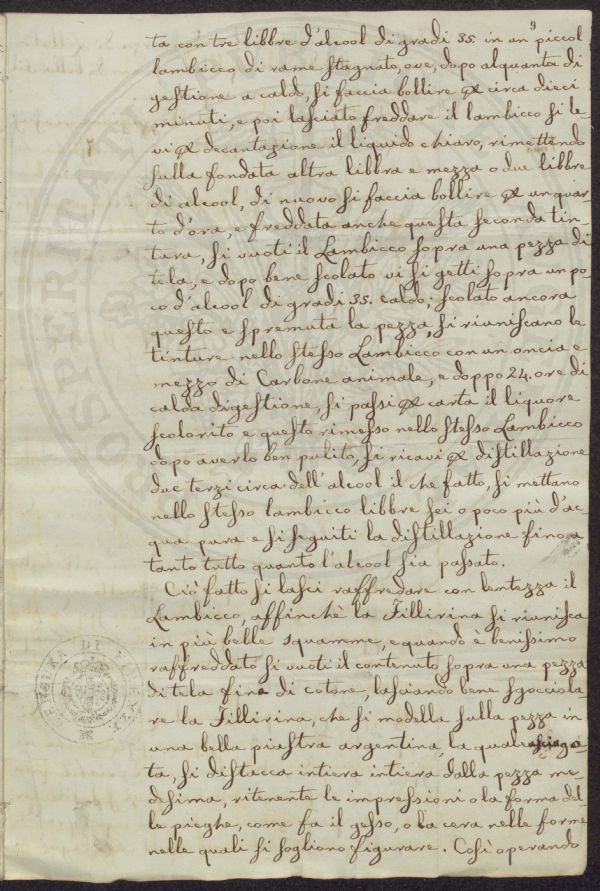 9
ta con tre libbre d'alcool di gradi 35. in un piccol
lambicco di rame stagnato, ove, dopo alquanta di
gestione a caldo, si faccia bollire per circa dieci
minuti, e poi lasciato freddare il lambicco si le-
vi per decantazione il liquido chiaro, rimettendo
sulla fondata altra libbra e mezza o due libbre
di alcool, di nuovo si faccia bollire per un quar-
to d'ora, e freddata anche questa seconda tin-
tura, si vuoti il Lambicco sopra una pezza di
tela, e dopo bene scolato vi si getti sopra un po-
co d'alcool di gradi 35. caldo; scolato ancora
questo e spremuta la pezza, si riuniscano le
tinture nello stesso Lambicco con un oncia e
mezzo di Carbone animale, e doppo 24. ore di
calda digestione, si passi per carta il liquore
scolorito e questo rimesso nello stesso Lambicco
dopo averlo ben pulito, si ricavi per distillazione
due terzi circa dell'alcool il che fatto, si mettano
nello stesso lambicco libbre sei o poco più d'ac-
qua pura e si seguiti la distillazione fino a
tanto tutto quanto l'alcool sia passato.
Ciò fatto si lasci raffreddare con lentezza il
Lambicco, affinchè la Fillirina si riunisca
in più belle squamme, e quando è benissimo
raffreddato si vuoti il contenuto sopra una pezza
di tela fina di cotone, lasciando bene sgocciola-
re la Fillirina, che si modella sulla pezza in
una bella piastra argentina, la quale asciuga-
ta, si distacca intiera intiera dalla pezza me-
desima, ritenente le impressioni o la forma del
le pieghe, come fa il gesso, o la cera nelle forme
nelle quali si sogliono figurare. Così operando